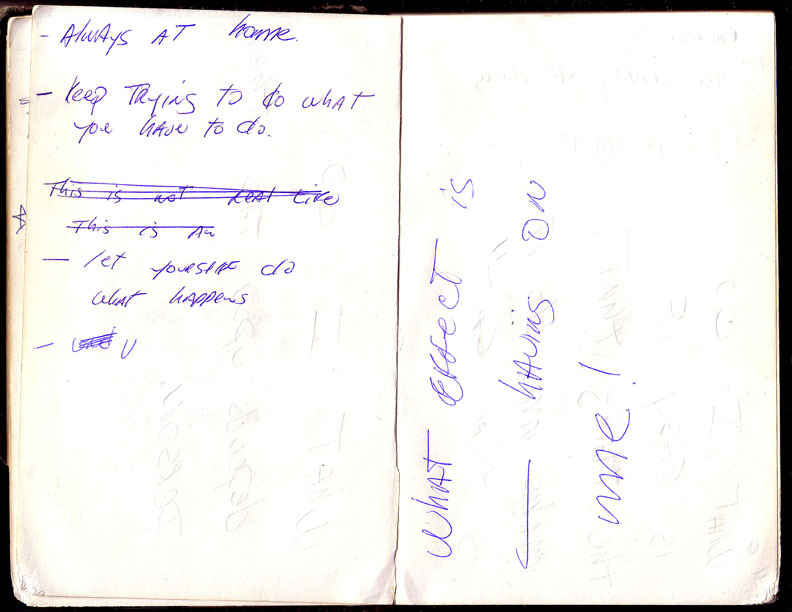 - Always AT home.
- Keep Trying to do what
you have to do.
This is not real like
This is An
- let yourself do
what happens
- U
What effect is
having on
me!